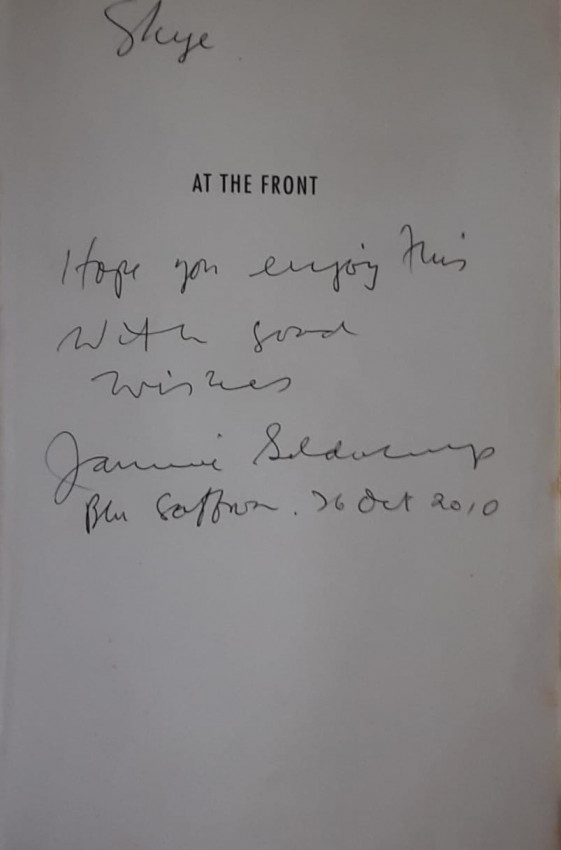 Skye
AT THE FRONT
Hope you enjoy this
With good
wishes
Jannie
Blu Saffron. 26 Oct 2010